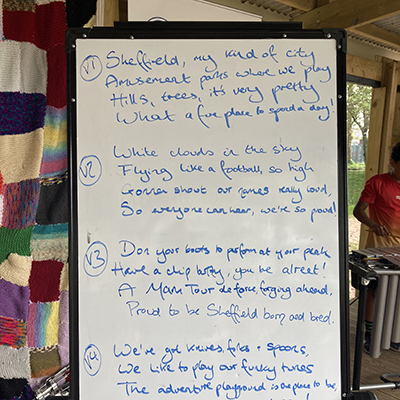 V1 Sheffield, my kind of city
Amusement parks where we play
Hills, trees, it's very pretty
What a fine place to spend a day!
V2 White clouds in the sky
Flying like a football, so high
Gonna shout our names really loud,
So everyone can hear, we're so proud!
V3 Don your boots to perform at your peak
Have a chip butty, you be alreet!
A Mani Tour de force, forging ahead,
Proud to be Sheffield born and bred.
V4 We've got knives, forks + spoons,
We like to play our funky tunes
The adventure playground is the place to be,